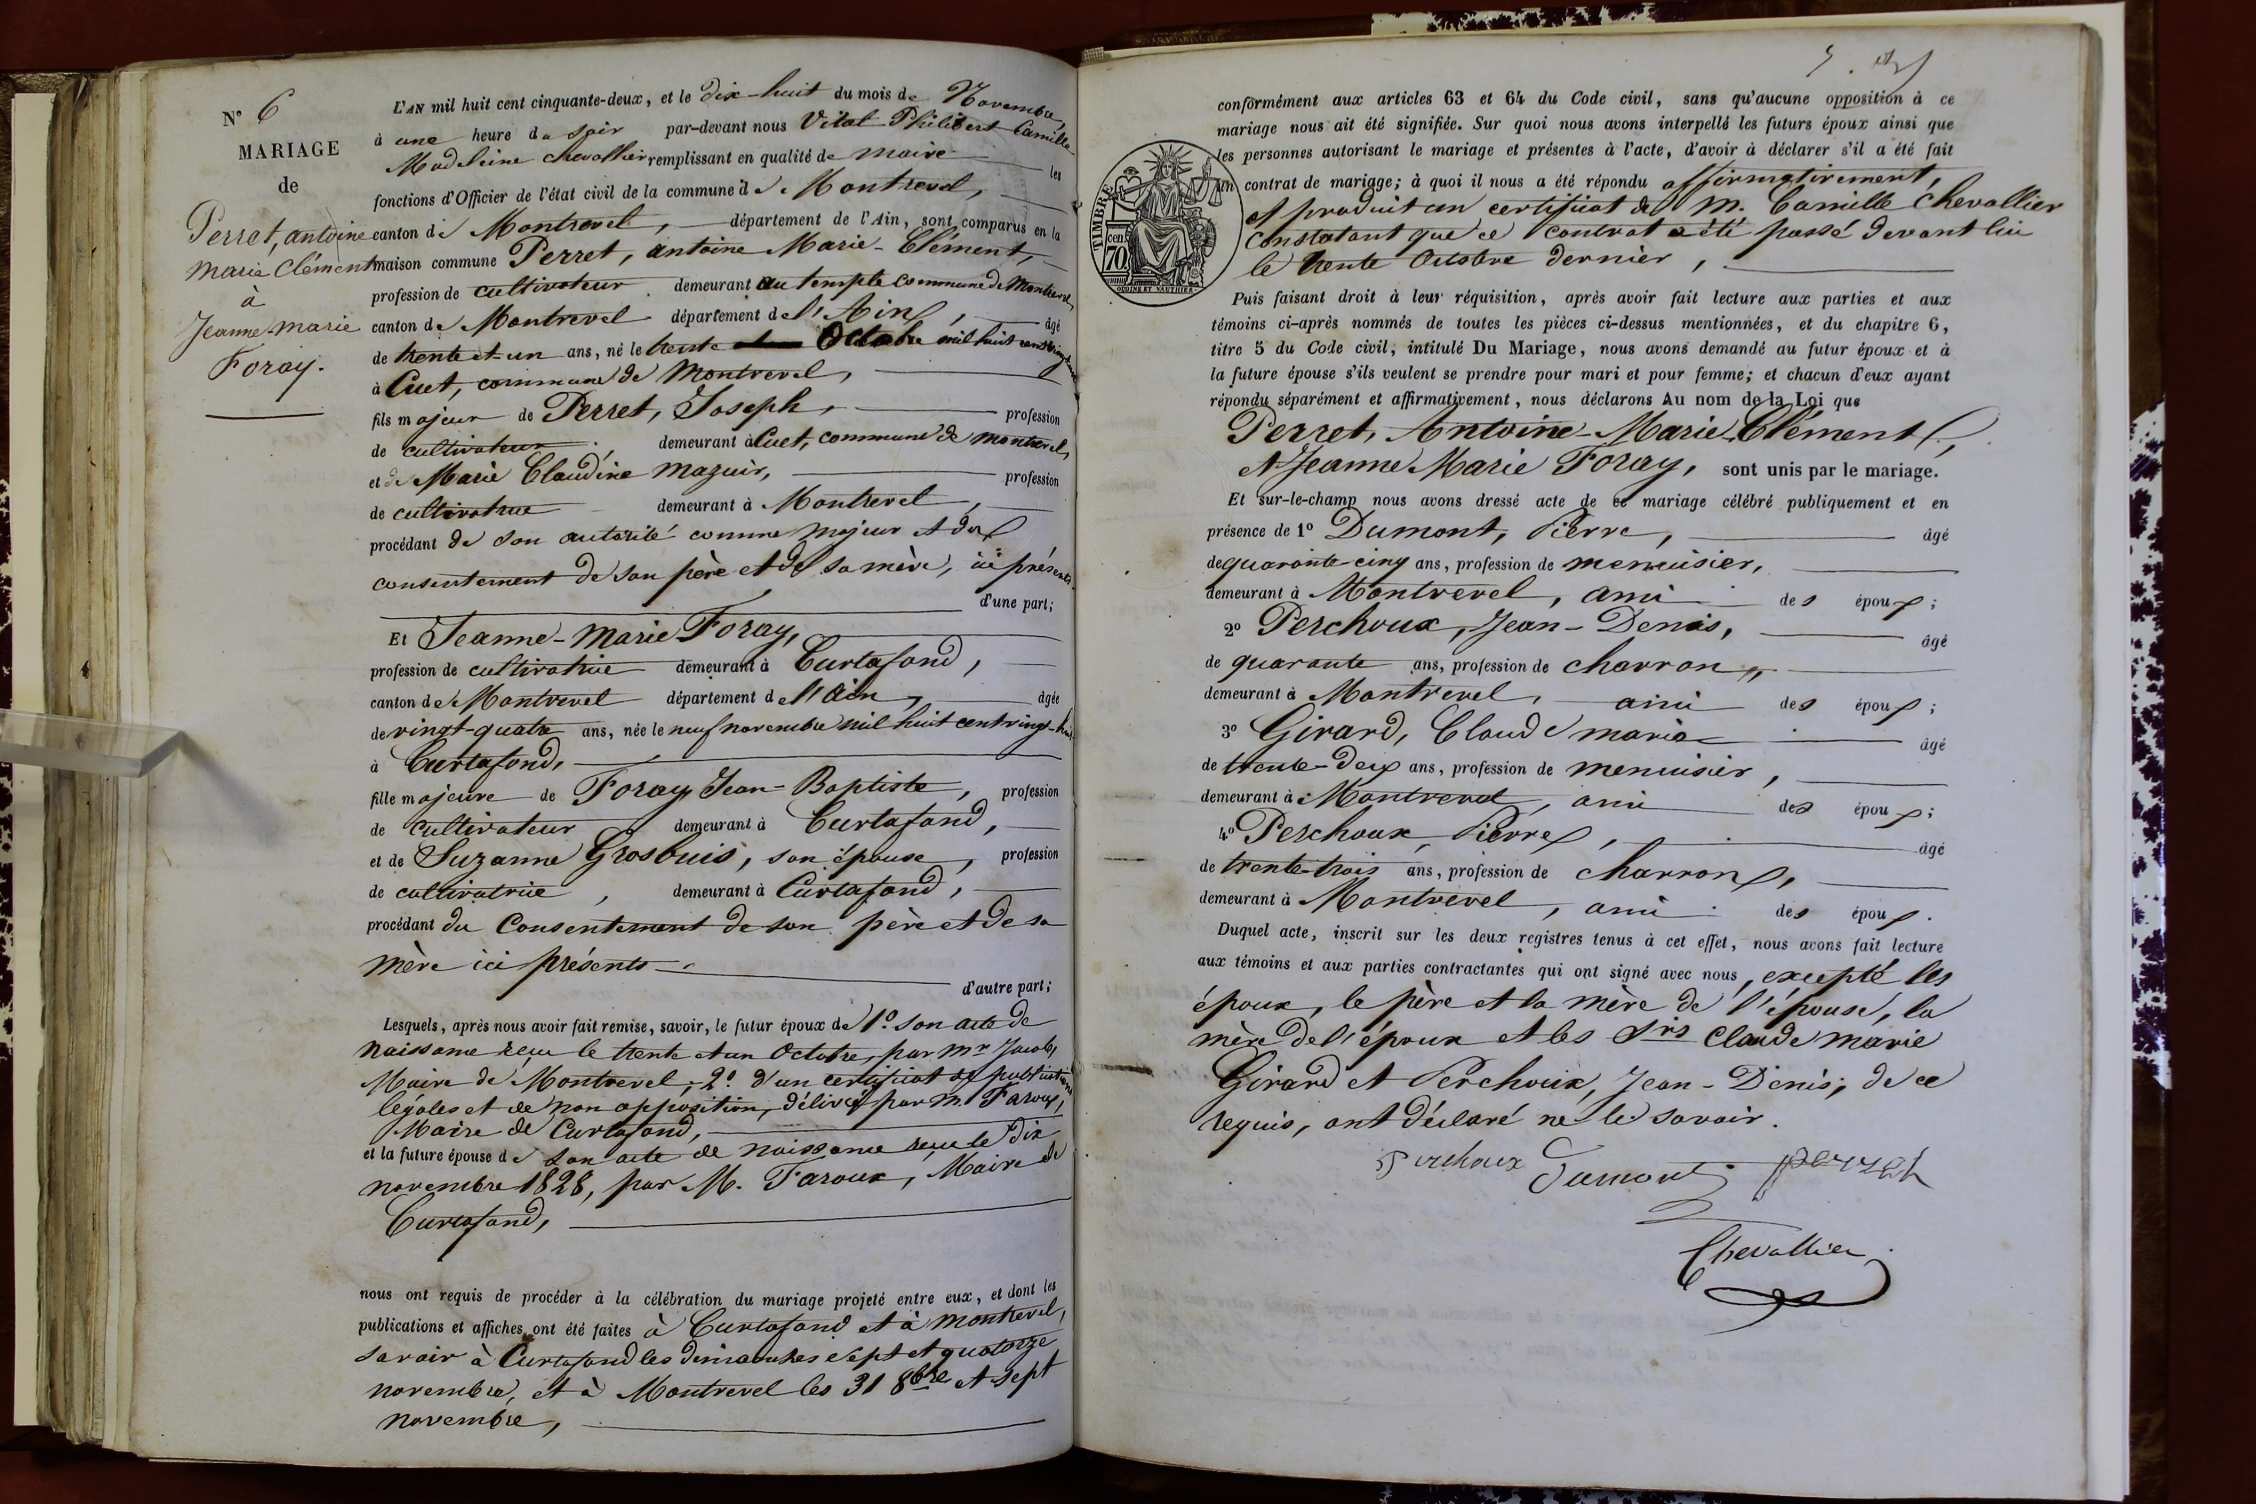 N° 6
MARIAGE
de
Perret, antoine
marie Clément
à
Jeanne-marie
Foray.
L'AN mil huit cent cinquante-deux, et le dix-huit du mois de Novembre,
à une heure du soir par-devant nous Vital Philibert Camille-
Madeleine chevallier remplissant en qualité de maire les
fonctions d'Officier de l'état civil de la commune de Montrevel,
canton de Montrevel, département de l'Ain, sont comparus en la
maison commune Perret, antoine Marie-Clément,
profession de cultivateur demeurant au temple commune de Montrevel,
canton de Montrevel département de l'Ain, âgé
de trente et un ans, né le trente Octobre mil huit cent vingt
à Cuet, commune de Montrevel,
fils majeur de Perret, Joseph, profession
de cultivateur, demeurant à Cuet, commune de montrevel,
et de Marie Claudine Maguir, profession
de cultivatrice demeurant à Montrevel,
procédant de son autorité comme majeur et du
consentement de son père et de sa mère, ici présents
d'une part;
Et Jeanne-Marie Foray,
profession de cultivatrice demeurant à Curtafond,
canton de Montrevel département de l'Ain, âgée
de vingt-quatre ans, née le neuf novembre mil huit cent vingt-huit
à Curtafond,
fille majeure de Foray Jean-Baptiste, profession
de cultivateur demeurant à Curtafond,
et de Suzanne Grosbuis, son épouse, profession
de cultivatrice, demeurant à Curtafond,
procédant du Consentement de son père et de sa
mère ici présents.
d'autre part;
Lesquels, après nous avoir fait remise, savoir, le futur époux de 1° son acte de
naissance reçu le trente et un Octobre, par Mr Jacob,
Maire de Montrevel, 2° d'un certificat de publications
légales et de non opposition, délivré par M. Faroux,
Maire de Curtafond,
et la future épouse de son acte de naissance reçu le dix
novembre 1828, par M. Faroux, Maire de
Curtafond,
nous ont requis de procéder à la célébration du mariage projeté entre eux, et dont les
publications et affiches ont été faites à Curtafond et à Montrevel,
savoir à Curtafond les dimanches sept et quatorze
novembre, et à Montrevel les 31 8bre et sept
novembre,
conformément aux articles 63 et 64 du Code civil, sans qu'aucune opposition à ce
mariage nous ait été signifiée. Sur quoi nous avons interpellé les futurs époux ainsi que
les personnes autorisant le mariage et présentes à l'acte, d'avoir à déclarer s'il a été fait
un contrat de mariage; à quoi il nous a été répondu affirmativement,
et produit un certificat de M. Camille Chevallier
constatant que ce contrat a été passé devant lui
le trente Octobre dernier,
TIMBRE
70 cen
OUDINE ET VAUTHIER
Puis faisant droit à leur réquisition, après avoir fait lecture aux parties et aux
témoins ci-après nommés de toutes les pièces ci-dessus mentionnées, et du chapitre 6,
titre 5 du Code civil, intitulé Du Mariage, nous avons demandé au futur époux et à
la future épouse s'ils veulent se prendre pour mari et pour femme; et chacun d'eux ayant
répondu séparément et affirmativement, nous déclarons Au nom de la Loi que
Perret, Antoine-Marie Clément,
et Jeanne Marie Foray, sont unis par le mariage.
Et sur-le-champ nous avons dressé acte de ce mariage célébré publiquement et en
présence de 1° Dumont, Pierre, âgé
de quarante-cinq ans, profession de menuisier,
demeurant à Montrevel, ami des époux;
2° Perchoux, Jean-Denis, âgé
de quarante ans, profession de charron,
demeurant à Montrevel, ami des époux;
3° Girard, Claude marie âgé
de trente-deux ans, profession de menuisier,
demeurant à Montrevel, ami des époux;
4° Perchoux, Pierre, âgé
de trente-trois ans, profession de charron,
demeurant à Montrevel, ami des époux.
Duquel acte, inscrit sur les deux registres tenus à cet effet, nous avons fait lecture
aux témoins et aux parties contractantes qui ont signé avec nous, excepté les
époux, le père et la mère de l'épouse, la
mère de l'époux et les Srs Claude marie
Girard et Perchoux, Jean-Denis, de ce
requis, ont déclaré ne le savoir.
Perchoux Dumont Perret
Chevallier